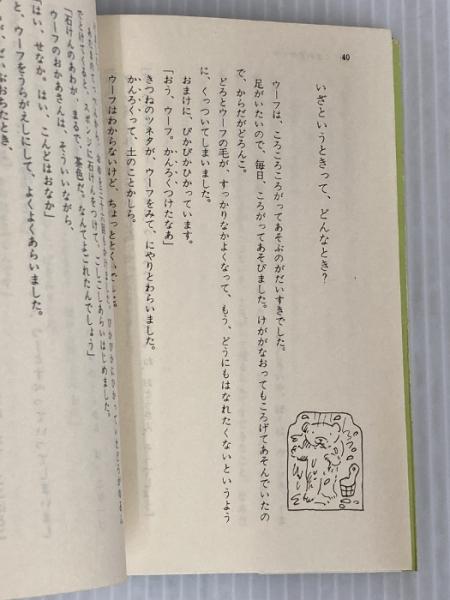 40
いざというときって、どんなとき?
ウーフは、ころころころがってあそぶのがだいすきでした。
足がいたいので、毎日、ころがってあそびました。けががなおってもころげてあそんでいたの
で、からだがどろんこ。
どろとウーフの毛が、すっかりなかよくなって、もう、どうにもはなれたくないというよう
に、くっついてしまいました。
おまけに、ぴかぴかひかっています。
「おう、ウーフ。かんろくつけたなあ」
きつねのツネタが、ウーフをみて、にやりとわらいました。
かんろくって、土のことかしら。
ウーフはわからないけど、ちょっととく
でとけてくると、スポンジに石けんをつけて、ごしごしあらいはじめました。
「石けんのあわが、まるで、茶色だ。なんてよごれたんでしょう」
ウーフのおかあさんは、そういいながら、
「はい、せなか。はい、こんどはおなか」
と、ウーフをうらがえしにして、よくよくあらいました。